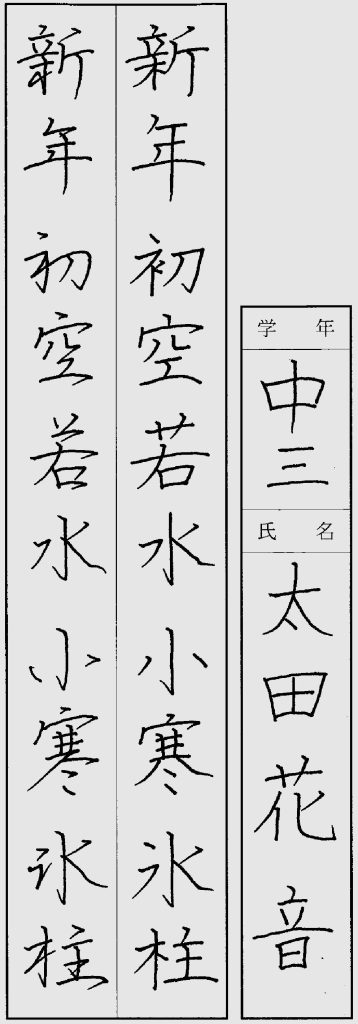 学年
中三
氏名
太田花音
新年 初空 若水 小寒 氷柱
新年 初空 若水 小寒 氷柱